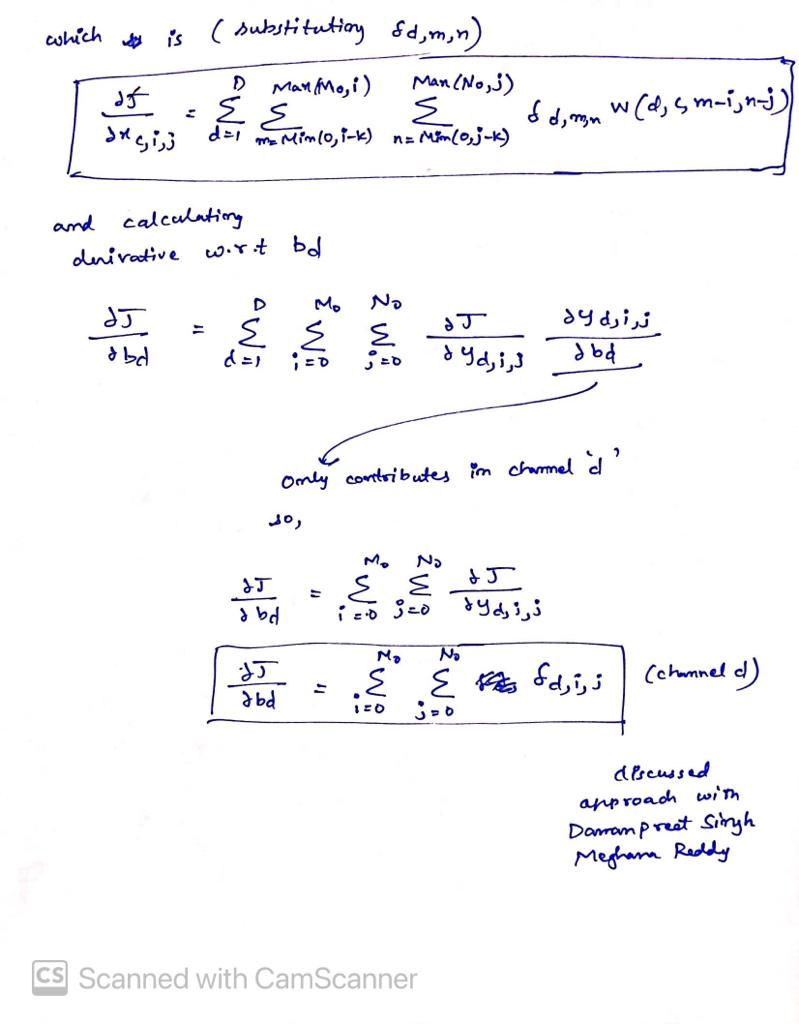 which is (substitution δd,m,n)
∂J/∂xς,i,j = Σ_{d=1}^{D} Σ_{m=Min(0,i-k)}^{Max(Mo,i)} Σ_{n=Min(0,j-k)}^{Max(No,j)} δd,m,n W(d,ς,m-i,n-j)
and calculating
derivative w.r.t bd
∂J/∂bd = Σ_{d=1}^{D} Σ_{i=0}^{Mo} Σ_{j=0}^{No} ∂J/∂yd,i,j ∂yd,i,j/∂bd
Only contributes in channel 'd'
so,
∂J/∂bd = Σ_{i=0}^{Mo} Σ_{j=0}^{No} ∂J/∂yd,i,j
∂J/∂bd = Σ_{i=0}^{Mo} Σ_{j=0}^{No} δd,i,j (channel d)
discussed
approach with
Damanpreet Singh
Meghana Reddy
CS Scanned with CamScanner